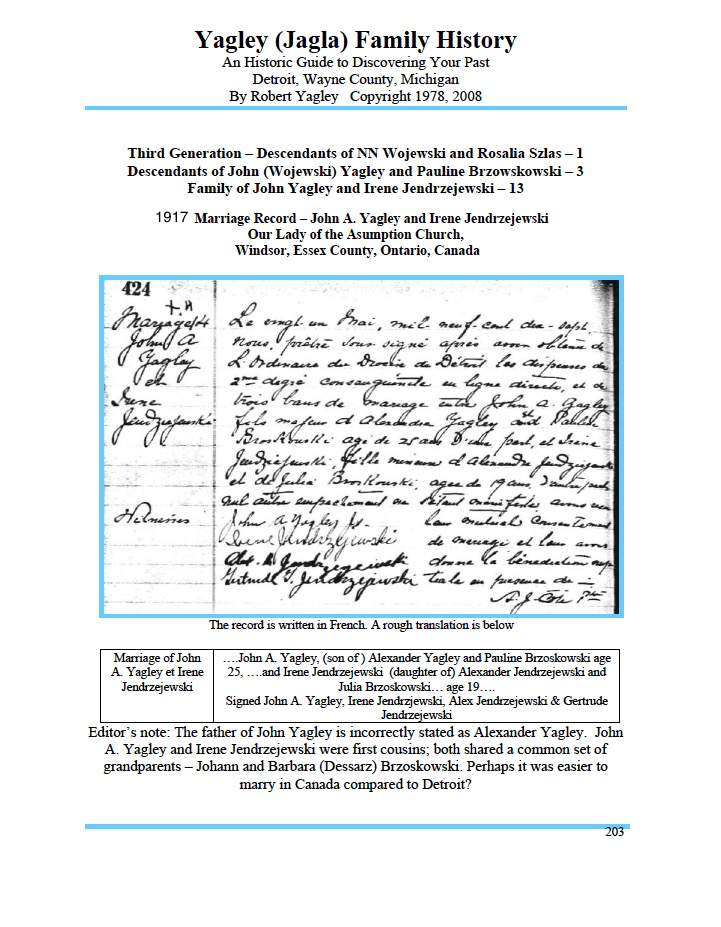 Yagley (Jagla) Family History
An Historic Guide to Discovering Your Past
Detroit, Wayne County, Michigan
By Robert Yagley   Copyright 1978, 2008
Third Generation – Descendants of NN Wojewski and Rosalia Szlas – 1
Descendants of John (Wojewski) Yagley and Pauline Brzowskowski – 3
Family of John Yagley and Irene Jendrzejewski – 13
1917 Marriage Record – John A. Yagley and Irene Jendrzejewski
Our Lady of the Asumption Church,
Windsor, Essex County, Ontario, Canada
424
Mariage
John A
Yagley
et
Irene
Jendziejewski
Witnesses
Le vingt-un Mai, mil-neuf-cent dix-sept,
Nous, prêtre sous-signé après avoir obtenu de
L'Ordinaire du Diocèse de Détroit les dispenses du
2me degré consanguinité en ligne directe, et de
trois bans de mariage entre John A. Yagley
fils majeur d'Alexandre Yagley and Pauline
Broskouski agé de 25 ans D'une part, et Irène
Jendziejewski, fille mineure d'Alexandre
et de Julia Broskouski, agée de 19 ans, d'autre part
nul autre empêchement ne
John A Yagley Jr. leur mutuel Consentement
Irene Jendrzejewski de mariage et leur avons
Alex. A. Jendrzejewski donné la bénédiction
Gertrude J. Jendrzejewski en presence de
A. J. Côté Ptre
The record is written in French. A rough translation is below
Marriage of John
A. Yagley et Irene
Jendrzejewski
….John A. Yagley, (son of ) Alexander Yagley and Pauline Brzoskowski age
25, ….and Irene Jendrzejewski  (daughter of) Alexander Jendrzejewski and
Julia Brzoskowski… age 19….
Signed John A. Yagley, Irene Jendrzjewski, Alex Jendrzejewski & Gertrude
Jendrzejewski
Editor's note: The father of John Yagley is incorrectly stated as Alexander Yagley.  John
A. Yagley and Irene Jendrzejewski were first cousins; both shared a common set of
grandparents – Johann and Barbara (Dessarz) Brzoskowski. Perhaps it was easier to
marry in Canada compared to Detroit?
203